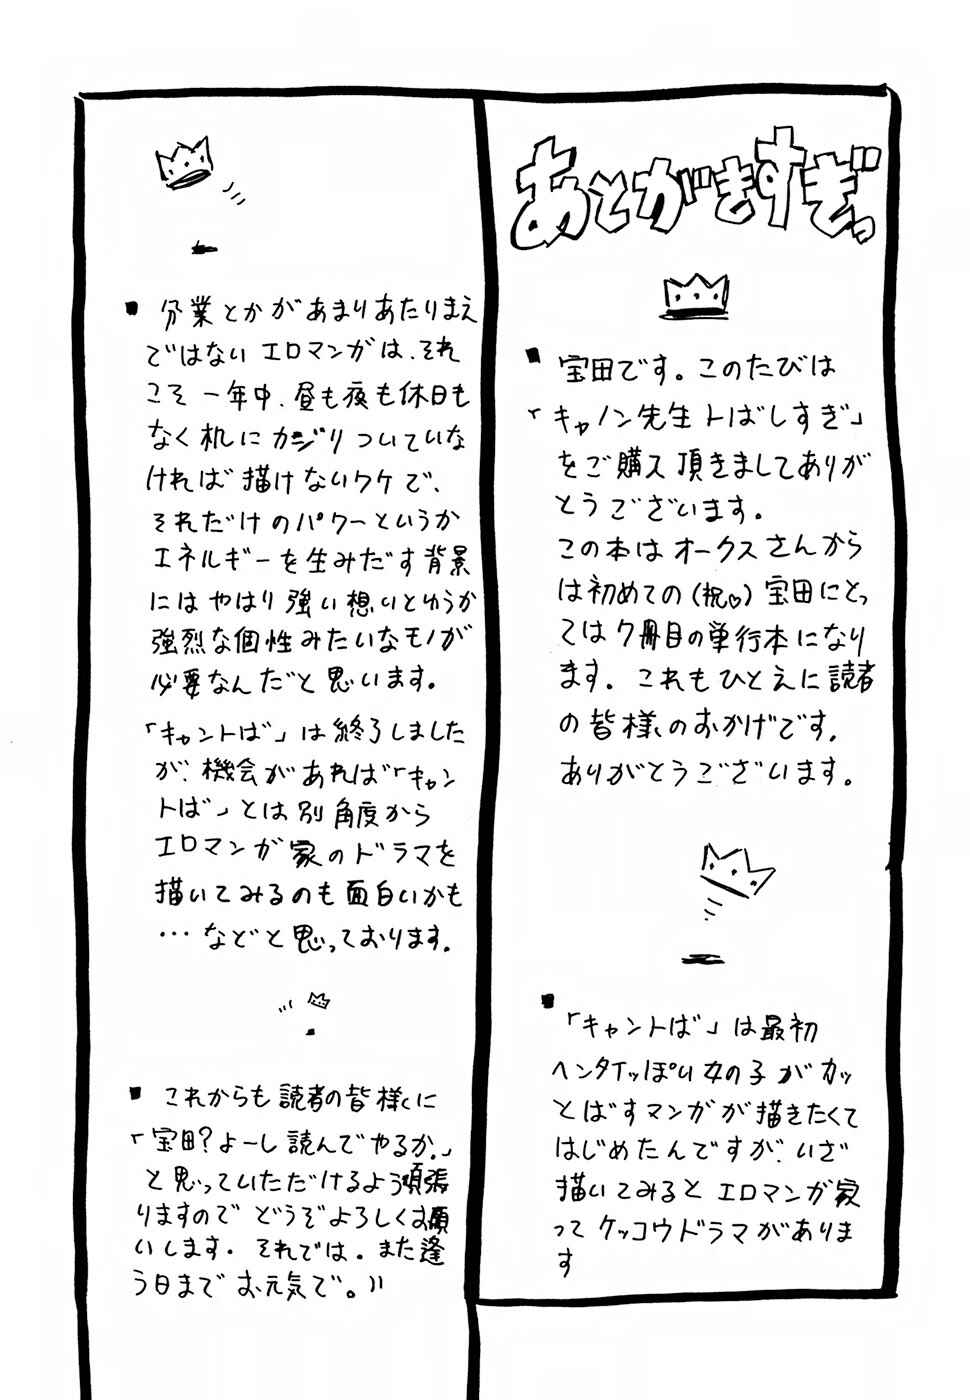 あとがきすぎっ
■ 宝田です。このたびは
「キャノン先生トばしすぎ」
をご購入頂きましてありが
とうございます。
この本はオークスさんから
は初めての(祝♡)宝田にとっ
ては7冊目の単行本になり
ます。これもひとえに読者
の皆様のおかげです。
ありがとうございます。
■「キャントば」は最初
ヘンタイッぽい女の子がカッ
とばすマンガが描きたくて
はじめたんですが、いざ
描いてみるとエロマンガ家
ってケッコウドラマがありま
す
■ 分業とかがあまりあたりまえ
ではないエロマンガは、それ
こそ一年中、昼も夜も休日も
なく机にカジりついていな
ければ描けないワケで、
それだけのパワーというか
エネルギーを生みだす背景
にはやはり強い想いとゆうか
強烈な個性みたいなモノが
必要なんだと思います。
「キャントば」は終了しました
が、機会があれば「キャン
トば」とは別角度から
エロマンガ家のドラマを
描いてみるのも面白いかも
…などと思っております。
■ これからも読者の皆様に
「宝田?よーし読んでやるか。」
と思っていただけるよう頑張
りますのでどうぞよろしくお願
いします。それでは。また逢
う日までお元気で。〃